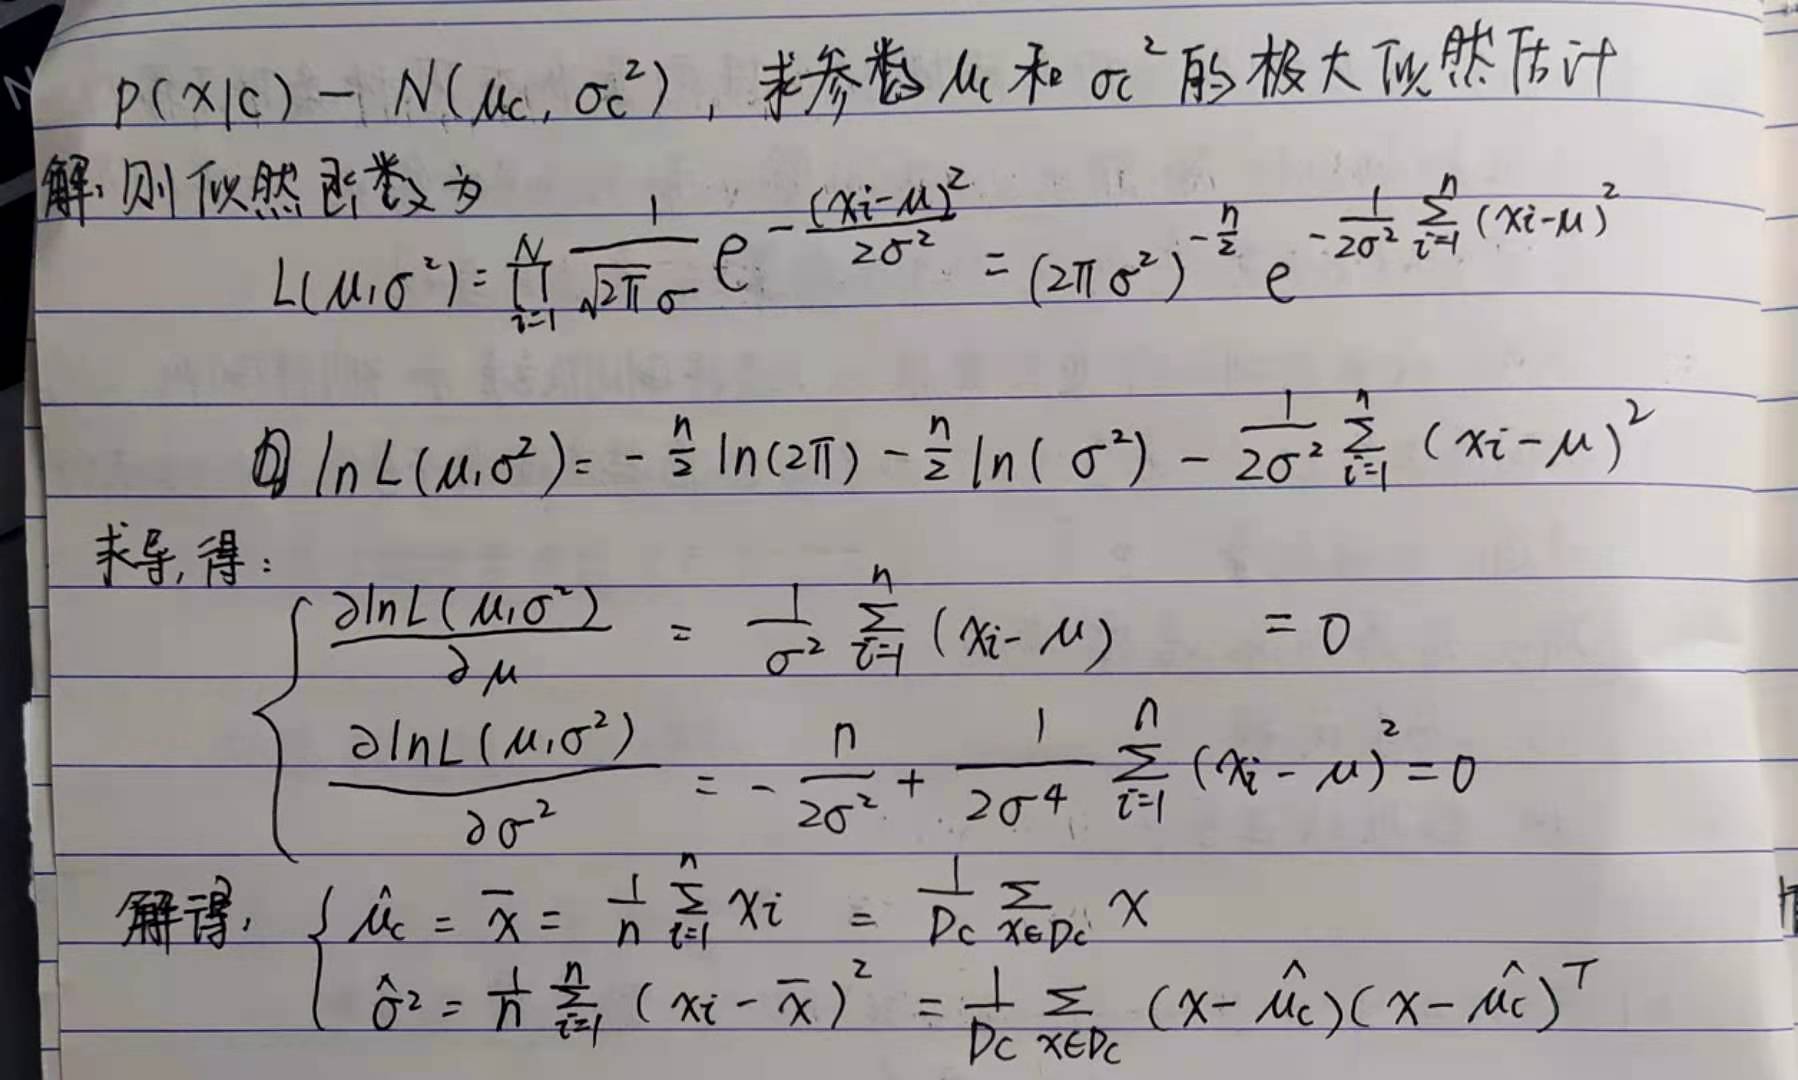 P(x|c) — N(μc, σc²), 求参数 μc 和 σc² 的极大似然估计
解: 则似然函数为
L(μ,σ²) = ∏_{i=1}^{N} 1/(√(2π) σ) e^{-(xi-μ)²/(2σ²)} = (2πσ²)^{-n/2} e^{-1/(2σ²) ∑_{i=1}^{n} (xi-μ)²}
ln L(μ,σ²) = - n/2 ln(2π) - n/2 ln(σ²) - 1/(2σ²) ∑_{i=1}^{n} (xi-μ)²
求导, 得:
∂lnL(μ,σ²)/∂μ = 1/σ² ∑_{i=1}^{n} (xi-μ) = 0
∂lnL(μ,σ²)/∂σ² = - n/(2σ²) + 1/(2σ⁴) ∑_{i=1}^{n} (xi-μ)² = 0
解得, μ̂c = x̄ = 1/n ∑_{i=1}^{n} xi = 1/Dc ∑_{x∈Dc} x
σ̂² = 1/n ∑_{i=1}^{n} (xi-x̄)² = 1/Dc ∑_{x∈Dc} (x-μ̂c)(x-μ̂c)^T